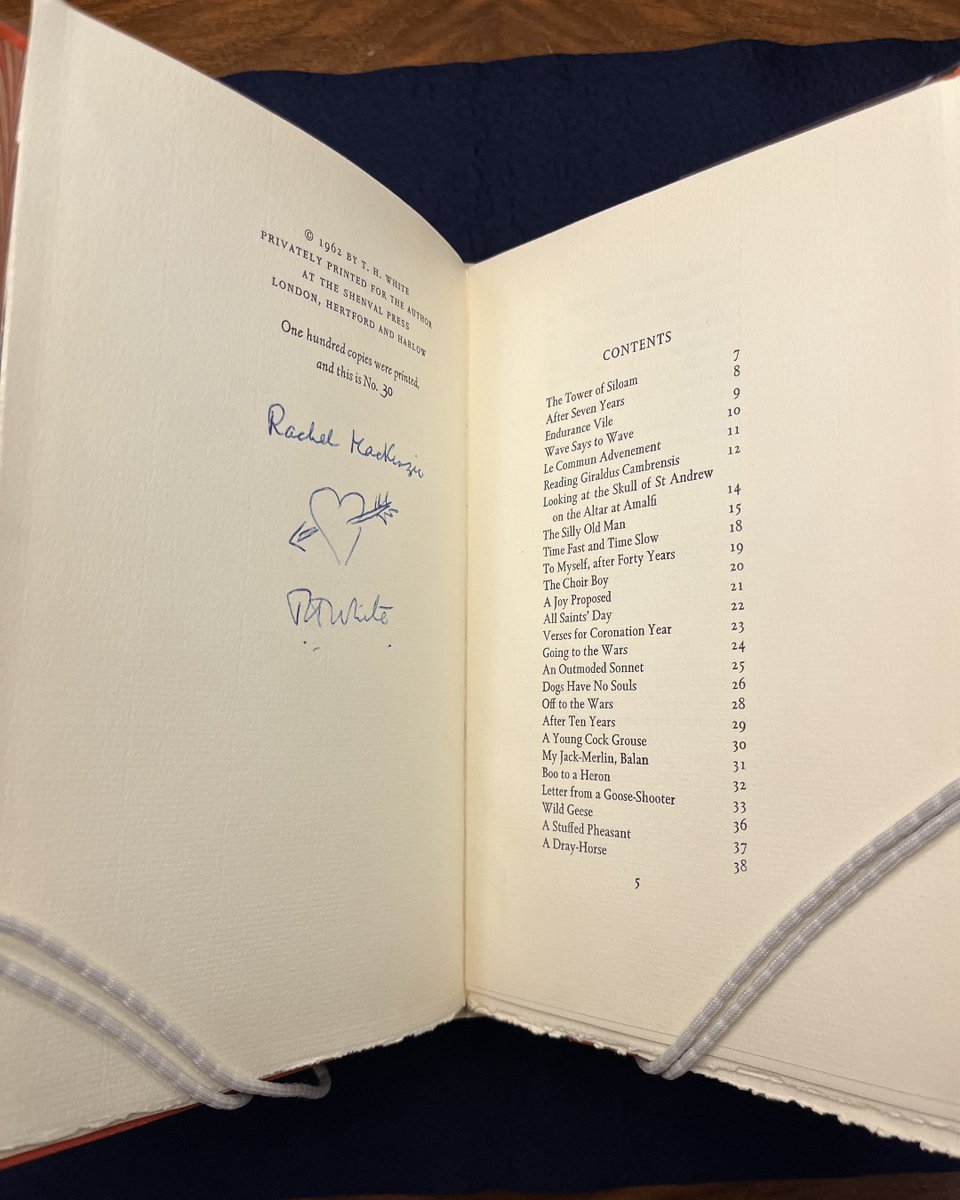 © 1962 BY T. H. WHITE
PRIVATELY PRINTED FOR THE AUTHOR
AT THE SHENVAL PRESS
LONDON, HERTFORD AND HARLOW
One hundred copies were printed,
and this is No. 30
Rachel MacKenzie
T H White
CONTENTS
The Tower of Siloam 7
After Seven Years 8
Endurance Vile 9
Wave Says to Wave 10
Le Commun Advenement 11
Reading Giraldus Cambrensis 12
Looking at the Skull of St Andrew
on the Altar at Amalfi 14
The Silly Old Man 15
Time Fast and Time Slow 18
To Myself, after Forty Years 19
The Choir Boy 20
A Joy Proposed 21
All Saints' Day 22
Verses for Coronation Year 23
Going to the Wars 24
An Outmoded Sonnet 25
Dogs Have No Souls 26
Off to the Wars 28
After Ten Years 29
A Young Cock Grouse 30
My Jack-Merlin, Balan 31
Boo to a Heron 32
Letter from a Goose-Shooter 33
Wild Geese 36
A Stuffed Pheasant 37
A Dray-Horse 38
5